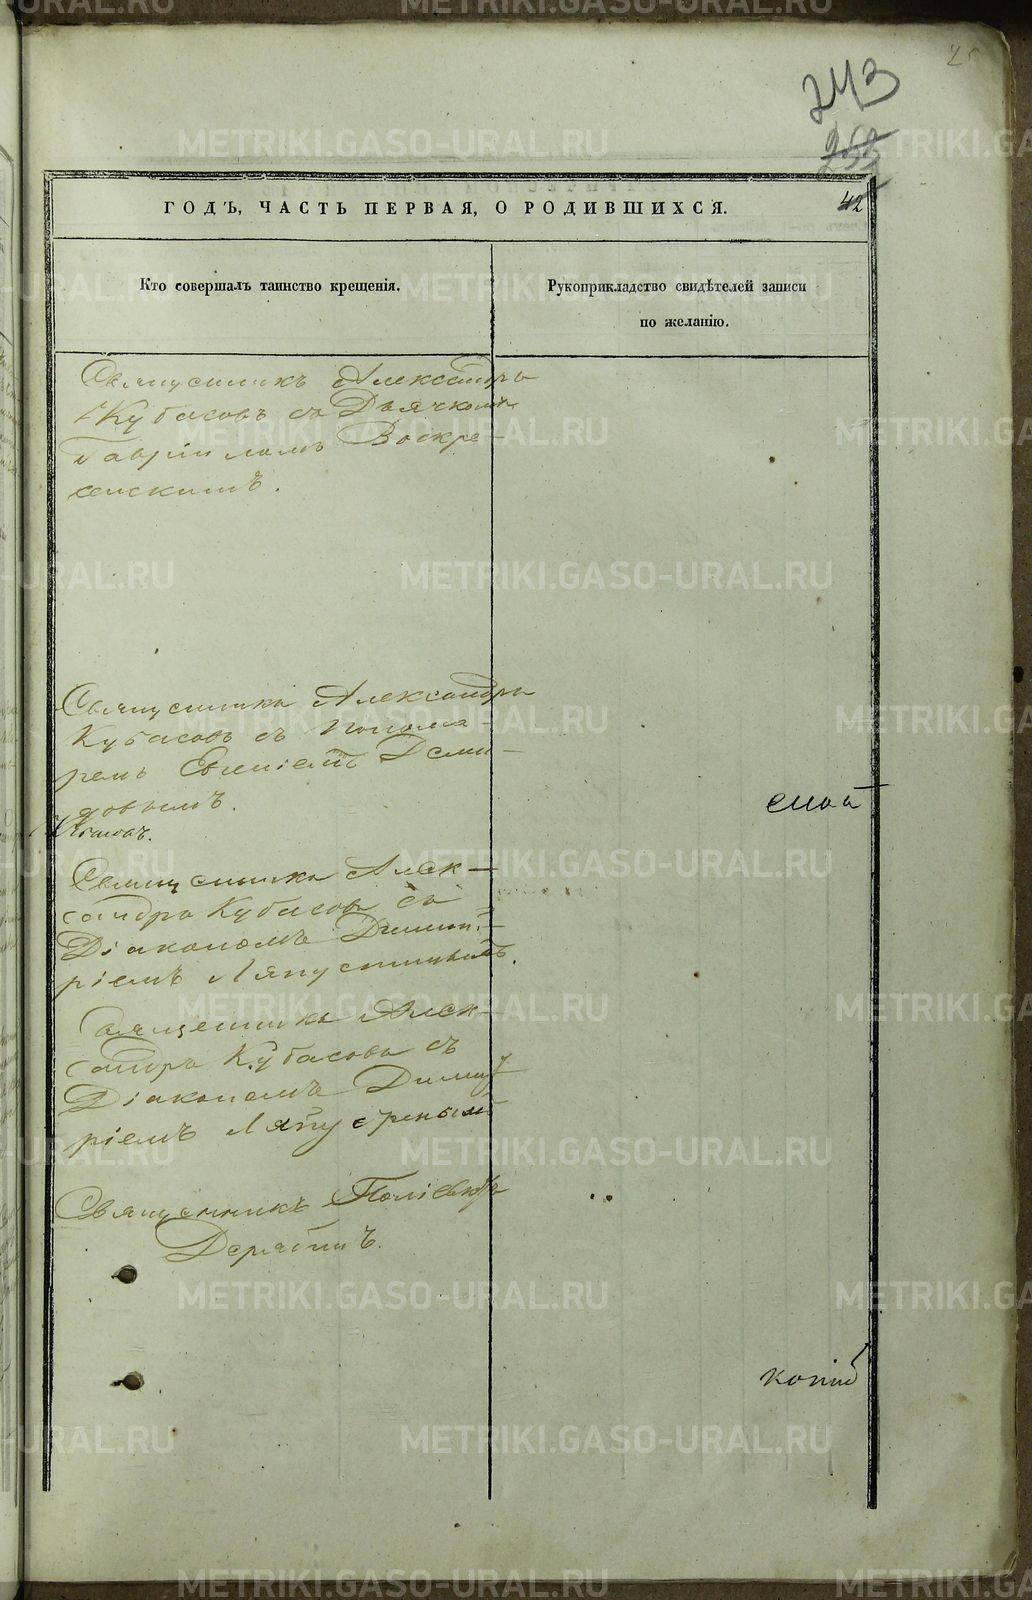 25
243
253
42
ГОДЪ, ЧАСТЬ ПЕРВАЯ, О РОДИВШИХСЯ.
Кто совершалъ таинство крещенія.
Рукоприкладство свидѣтелей записи
по желанію.
Священникъ Александръ
Кубасовъ съ Дьячкомъ
Гавріиломъ Воскре-
сенскимъ.
Священникъ Александръ
Кубасовъ съ понома-
ремъ Евгеніемъ Деми-
довымъ.
Священникъ Алек-
сандръ Кубасовъ съ
Діакономъ Димит-
ріемъ Ляпустинымъ.
Священникъ Алек-
сандръ Кубасовъ съ
Діакономъ Димит-
ріемъ Ляпустинымъ
Священникъ Поліевктъ
Дерябинъ.
копій
METRIKI.GASO-URAL.RU